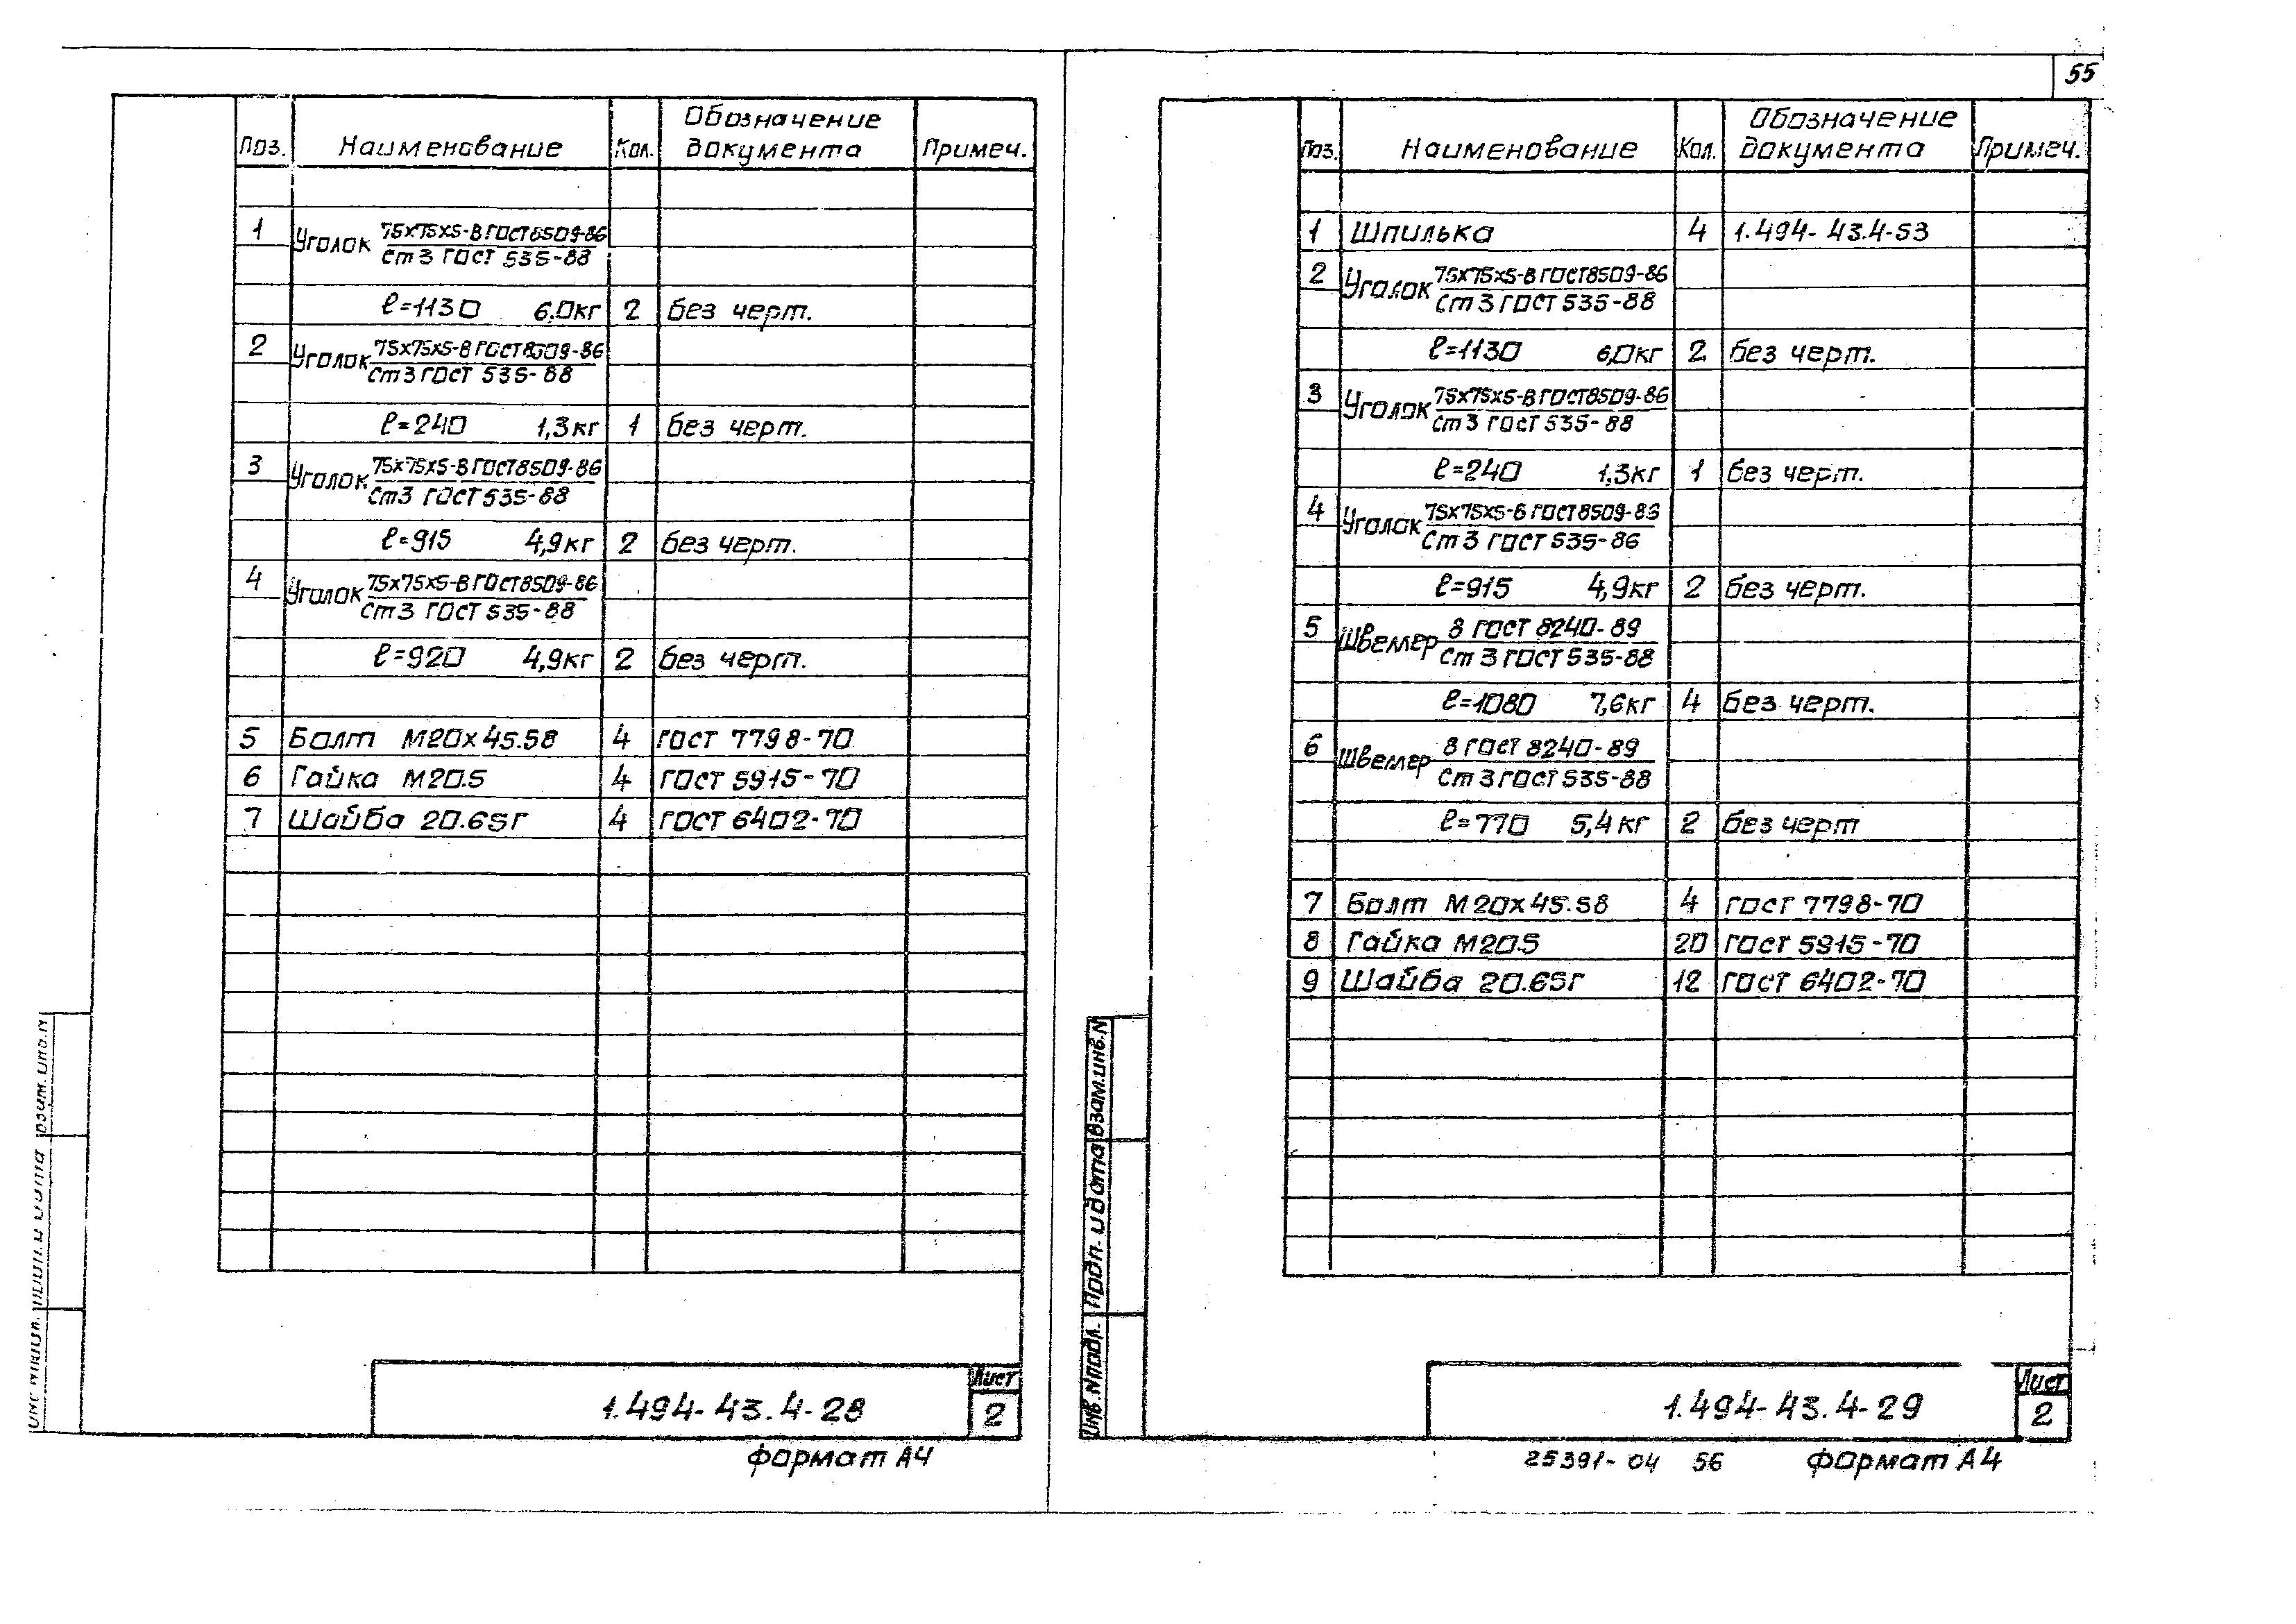 55
Поз. Наименование Кол. Обозначение документа Примеч.
1 Уголок 75х75х5-В ГОСТ 8509-86
Ст3 ГОСТ 535-88
ℓ=1130 6,0кг 2 без черт.
2 Уголок 75х75х5-В ГОСТ 8509-86
Ст3 ГОСТ 535-88
ℓ=240 1,3кг 1 без черт.
3 Уголок 75х75х5-В ГОСТ 8509-86
Ст3 ГОСТ 535-88
ℓ=915 4,9кг 2 без черт.
4 Уголок 75х75х5-В ГОСТ 8509-86
Ст3 ГОСТ 535-88
ℓ=920 4,9кг 2 без черт.
5 Болт М20х45.58 4 ГОСТ 7798-70
6 Гайка М20.5 4 ГОСТ 5915-70
7 Шайба 20.65Г 4 ГОСТ 6402-70
Взам. инв. N
Подп. и дата
Инв. N подл.
1.494-43.4-28
Лист
2
формат А4
Поз. Наименование Кол. Обозначение документа Примеч.
1 Шпилька 4 1.494-43.4-53
2 Уголок 75х75х5-В ГОСТ 8509-86
Ст3 ГОСТ 535-88
ℓ=1130 6,0кг 2 без черт.
3 Уголок 75х75х5-В ГОСТ 8509-86
Ст3 ГОСТ 535-88
ℓ=240 1,3кг 1 без черт.
4 Уголок 75х75х5-В ГОСТ 8509-86
Ст3 ГОСТ 535-86
ℓ=915 4,9кг 2 без черт.
5 Швеллер 8 ГОСТ 8240-89
Ст3 ГОСТ 535-88
ℓ=1080 7,6кг 4 без черт.
6 Швеллер 8 ГОСТ 8240-89
Ст3 ГОСТ 535-88
ℓ=770 5,4кг 2 без черт
7 Болт М20х45.58 4 ГОСТ 7798-70
8 Гайка М20.5 20 ГОСТ 5915-70
9 Шайба 20.65Г 12 ГОСТ 6402-70
Взам. инв. N
Подп. и дата
Инв. N подл.
1.494-43.4-29
Лист
2
25391-04 56 формат А4